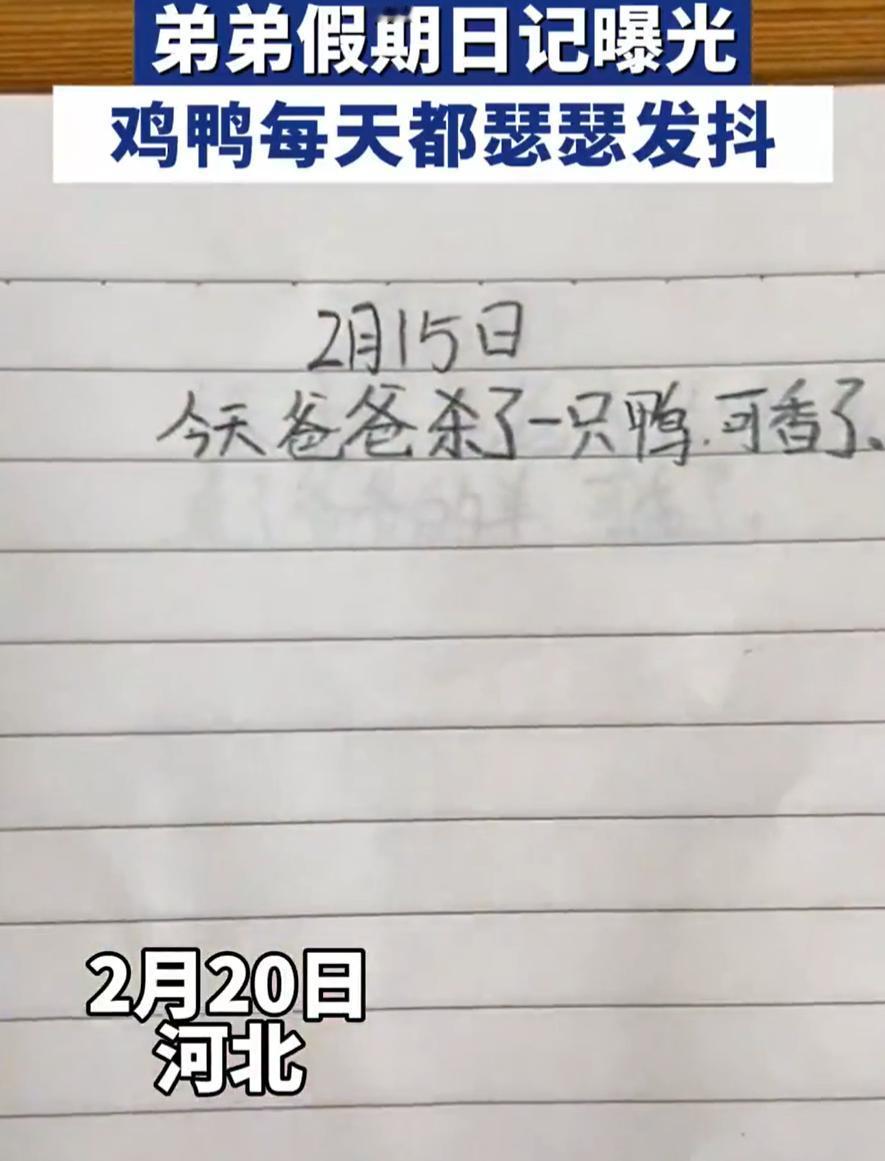 弟弟假期日记曝光
鸡鸭每天都瑟瑟发抖
2月15日
今天爸爸杀了一只鸭.可香了、
2月20日
河北